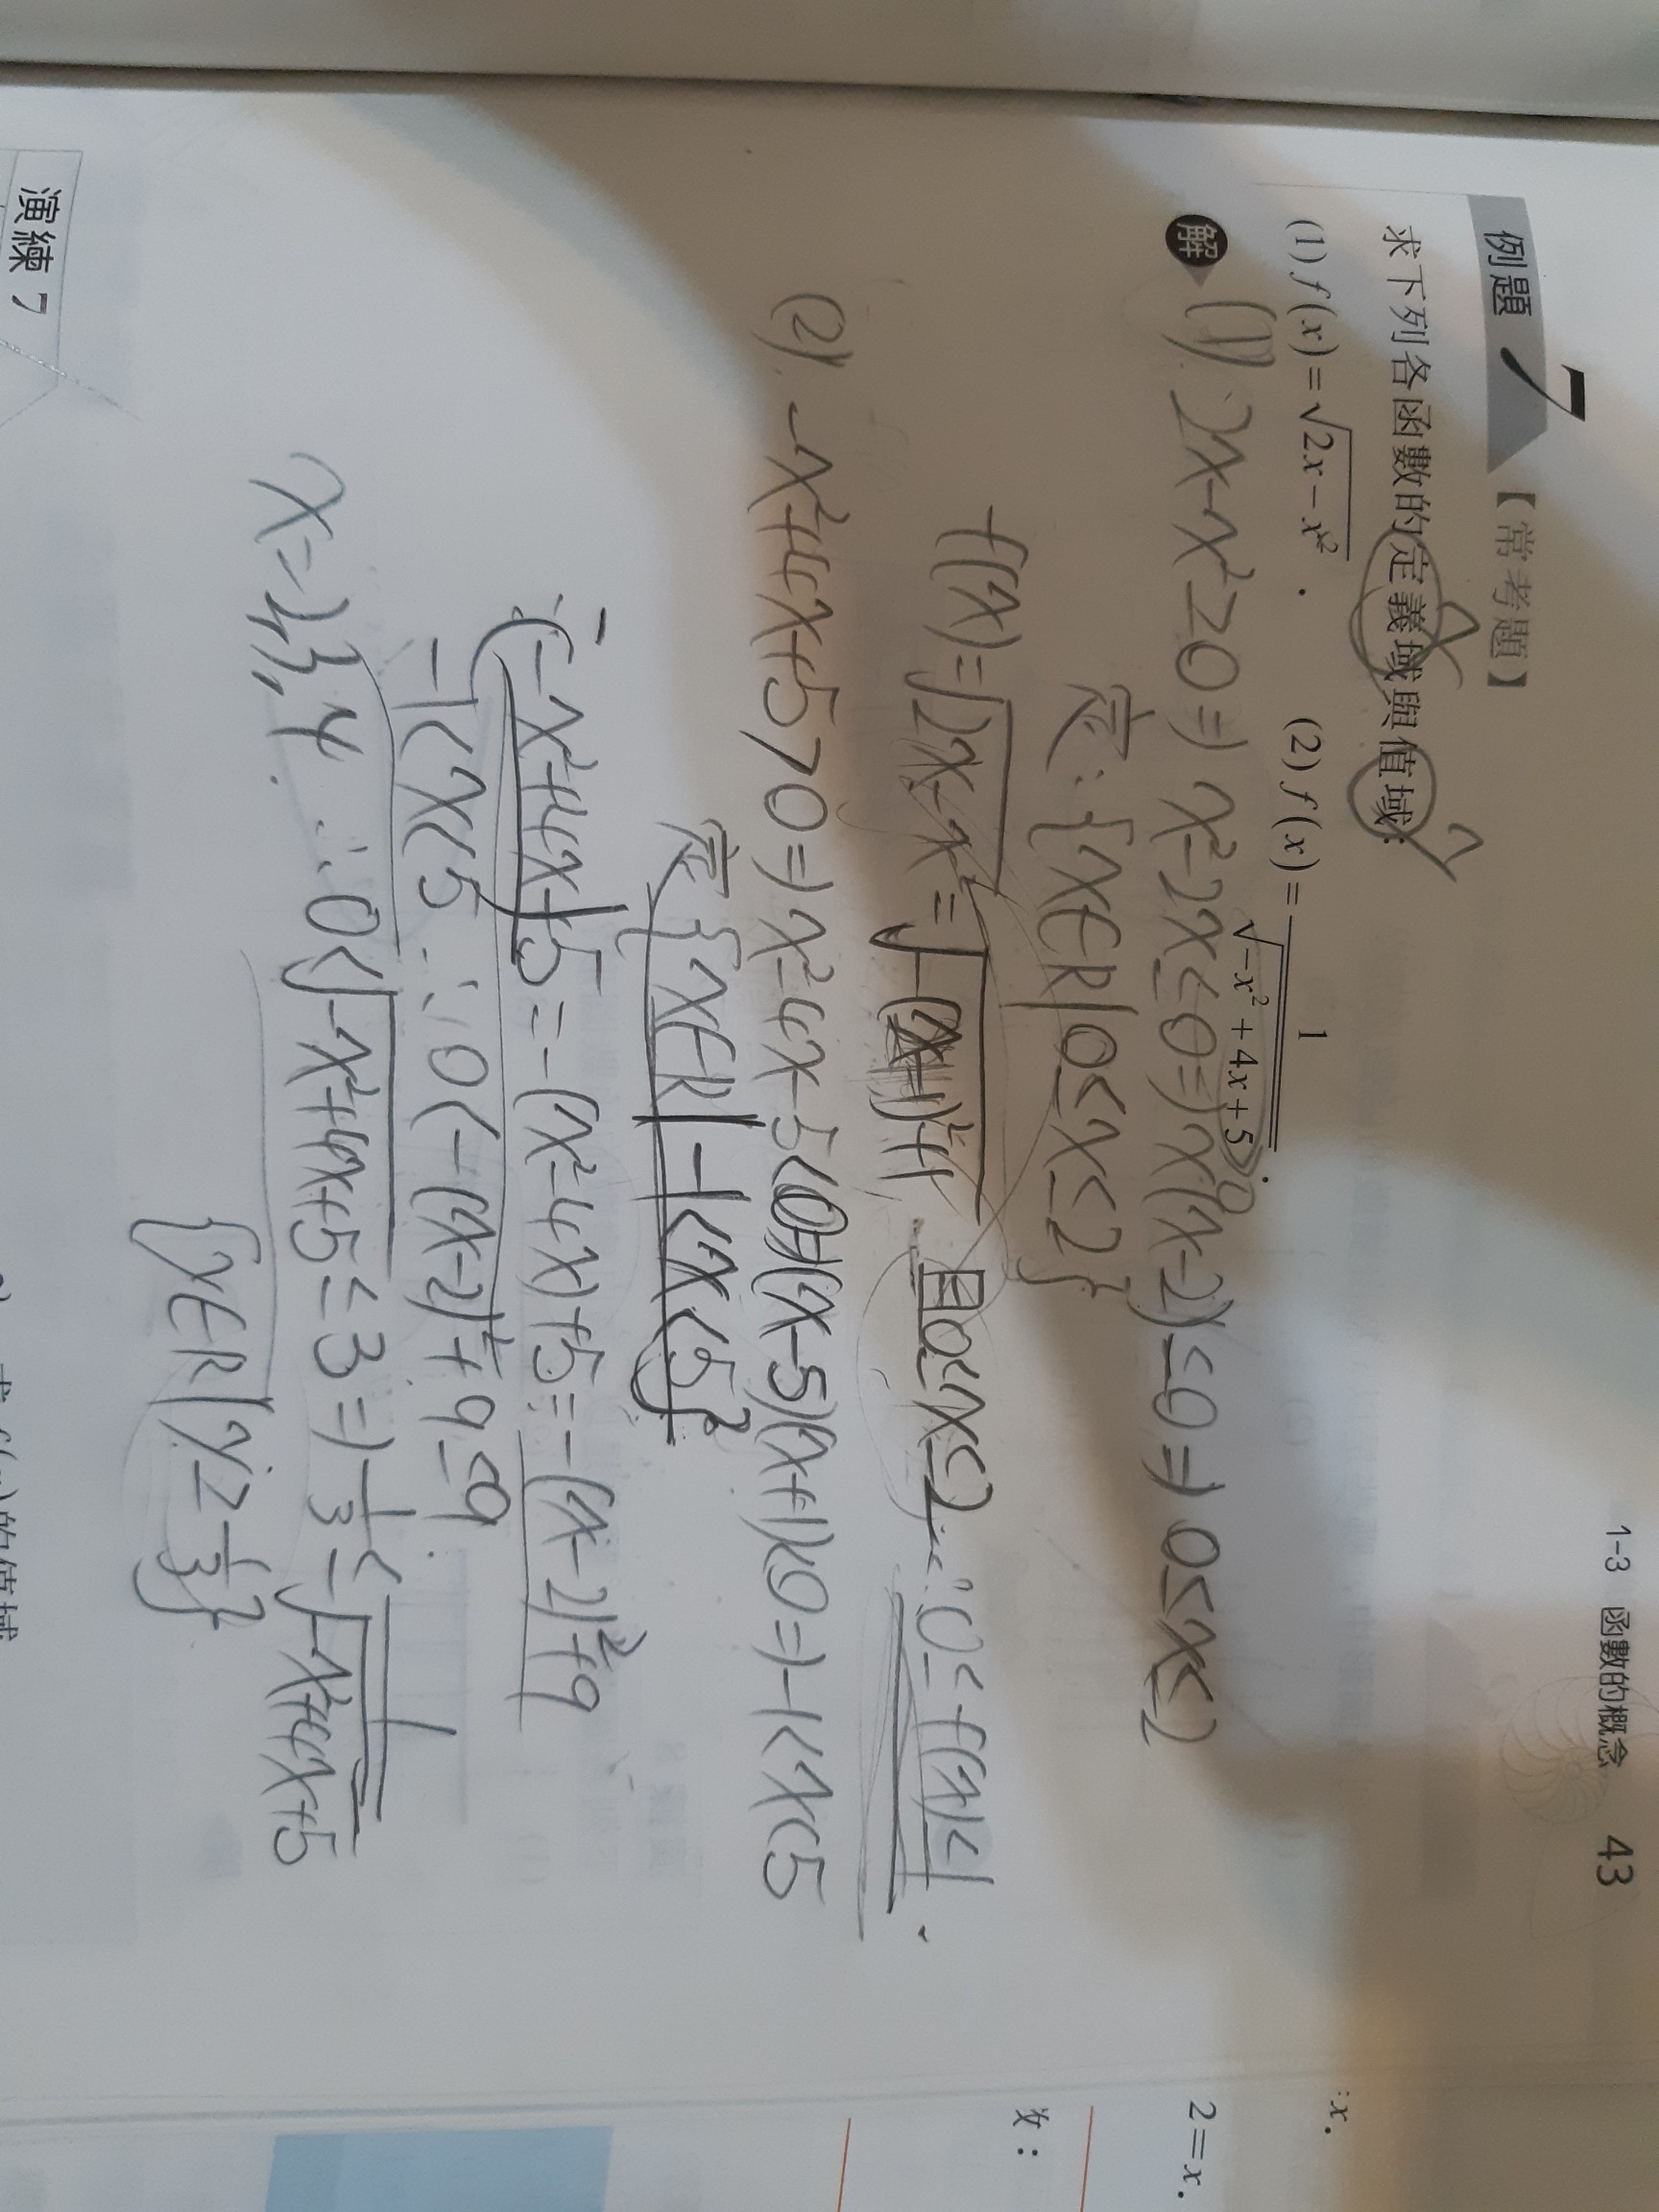 1-3 函數的概念 43
例題 7 【常考題】
求下列各函數的定義域與值域：
(1) f(x)=√2x−x² . (2) f(x)=1/√−x²+4x+5 .
>0
解 (1). 2x-x²≥0 ⇒ x²-2x≤0 ⇒ x(x-2)≤0 ⇒ 0≤x≤2
定：{x∈R|0≤x≤2}
f(x)=√2x-x²=√-(x-1)²+1 且0≤x≤2 ∴0≤f(x)≤1.
(2). -x²+4x+5>0 ⇒ x²-4x-5<0⇒(x-5)(x+1)<0 ⇒ -1<x<5
定{x∈R|-1<x<5}
-x²+4x+5=-(x²-4x)+5=-(x-2)²+9
-1<x<5 ∴0<-(x-2)²+9≤9.
x=2,3,4. ∴0<√-x²+4x+5≤3 ⇒ 1/3≤1/√-x²+4x+5
{y∈R|y≥1/3}
演練 7
的值域
:x.
2=x.